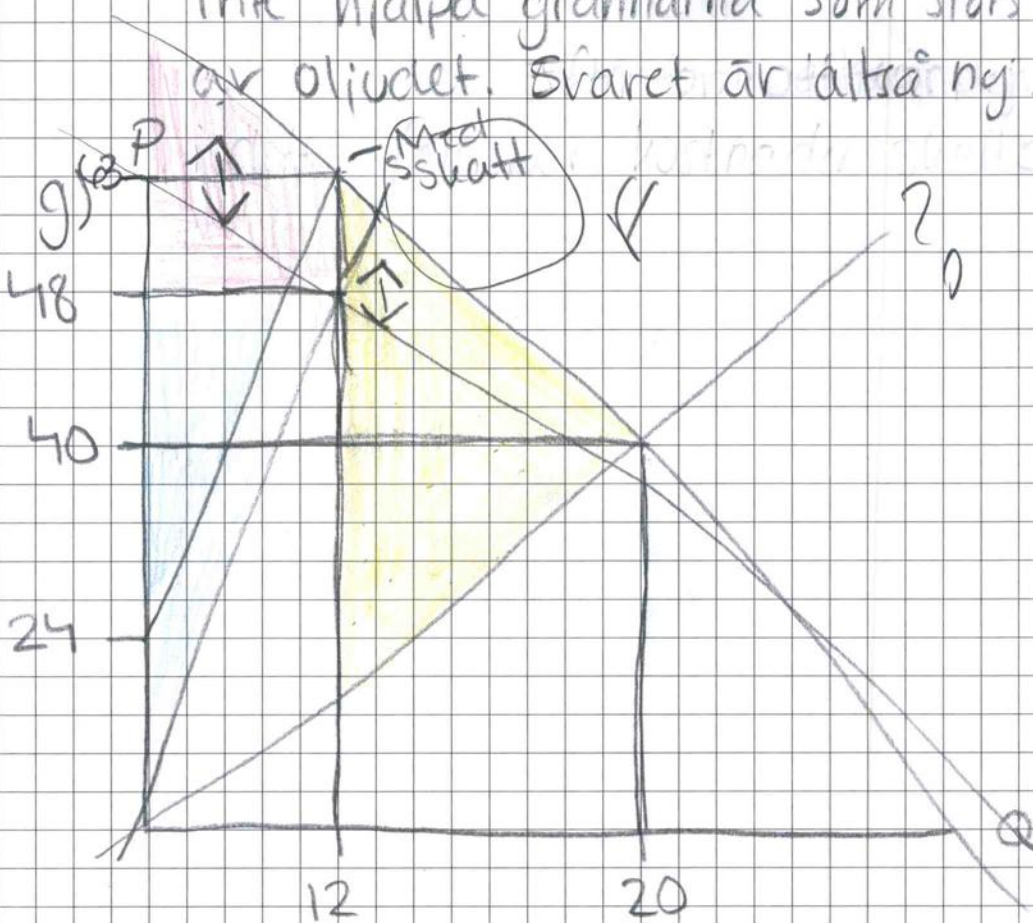 inte hjälpa grannarna som störs
av oljudet. Svaret är alltså nej
P
Med
skatt
g)
63
48
40
24
12
20
Q